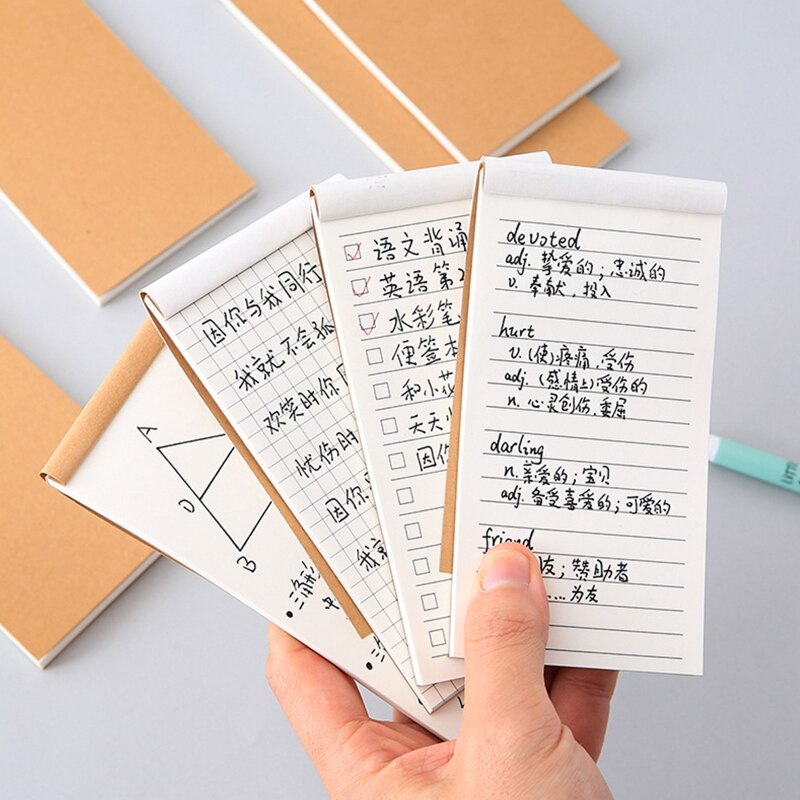 A
D
B
三角形
中
因你与我同行
我就不会孤
欢笑时你
忧伤时
因你
我京
语文背诵
英语第2
水彩笔
便签本
和小花
天天
因你
devoted
adj. 挚爱的；忠诚的
v. 奉献，投入
hurt
v. (使)疼痛，受伤
adj. (感情上)受伤的
n. 心灵创伤，委屈
darling
n. 亲爱的；宝贝
adj. 备受喜爱的；可爱的
friend
友；赞助者
……为友